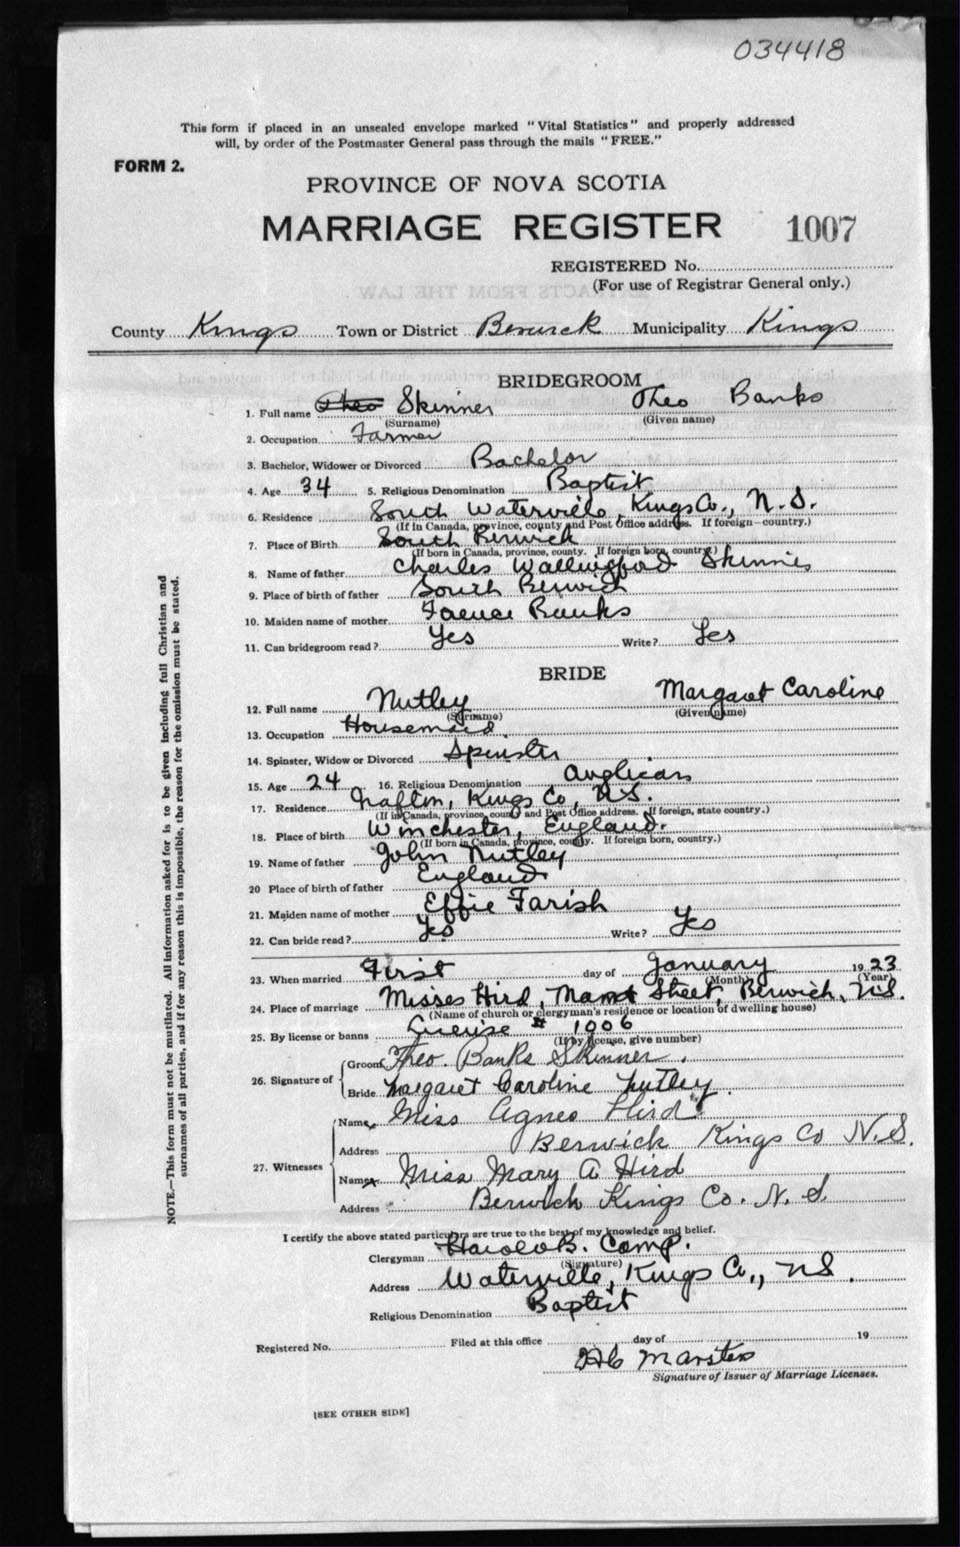 034418
This form if placed in an unsealed envelope marked "Vital Statistics" and properly addressed
will, by order of the Postmaster General pass through the mails "FREE."
FORM 2.
PROVINCE OF NOVA SCOTIA
MARRIAGE REGISTER 1007
REGISTERED No.
(For use of Registrar General only.)
County Kings Town or District Berwick Municipality Kings
BRIDEGROOM
1. Full name Theo Skinner Theo Banks
(Surname) (Given name)
2. Occupation Farmer
3. Bachelor, Widower or Divorced Bachelor
4. Age 34 5. Religious Denomination Baptist
6. Residence South Waterville, Kings Co., N.S.
(If in Canada, province, county and Post Office address. If foreign—country.)
7. Place of Birth South Berwick
(If born in Canada, province, county. If foreign born, country.)
8. Name of father Charles Wallingford Skinner
9. Place of birth of father South Berwick
10. Maiden name of mother Banks
11. Can bridegroom read? Yes Write? Yes
BRIDE
12. Full name Nutley Margaret Caroline
(Surname) (Given name)
13. Occupation Housemaid.
14. Spinster, Widow or Divorced Spinster
15. Age 24 16. Religious Denomination Anglican
17. Residence Grafton, Kings Co., N.S.
(If in Canada, province, county and Post Office address. If foreign, state country.)
18. Place of birth Winchester, England.
(If born in Canada, province, county. If foreign born, country.)
19. Name of father John Nutley
20 Place of birth of father England
21. Maiden name of mother Effie Farish
22. Can bride read? Yes Write? Yes
23. When married First day of January 1923
(Month) (Year)
24. Place of marriage Misses Hird, Street, Berwick, N.S.
(Name of church or clergyman's residence or location of dwelling house)
25. By license or banns License # 1006
(If by license, give number)
26. Signature of Groom Theo. Banks Skinner.
Bride Margaret Caroline Nutley.
27. Witnesses Name Miss Agnes Hird
Address Berwick Kings Co N.S.
Name Miss Mary A Hird
Address Berwick Kings Co. N. S.
I certify the above stated particulars are true to the best of my knowledge and belief.
Clergyman Harold B. Camp.
(Signature)
Address Waterville, Kings Co., N.S.
Religious Denomination Baptist
Registered No. Filed at this office day of 19
Marsters
Signature of Issuer of Marriage Licenses.
[SEE OTHER SIDE]
NOTE.—This form must not be mutilated. All information asked for is to be given including full Christian and
surnames of all parties, and if for any reason this is impossible, the reason for the omission must be stated.